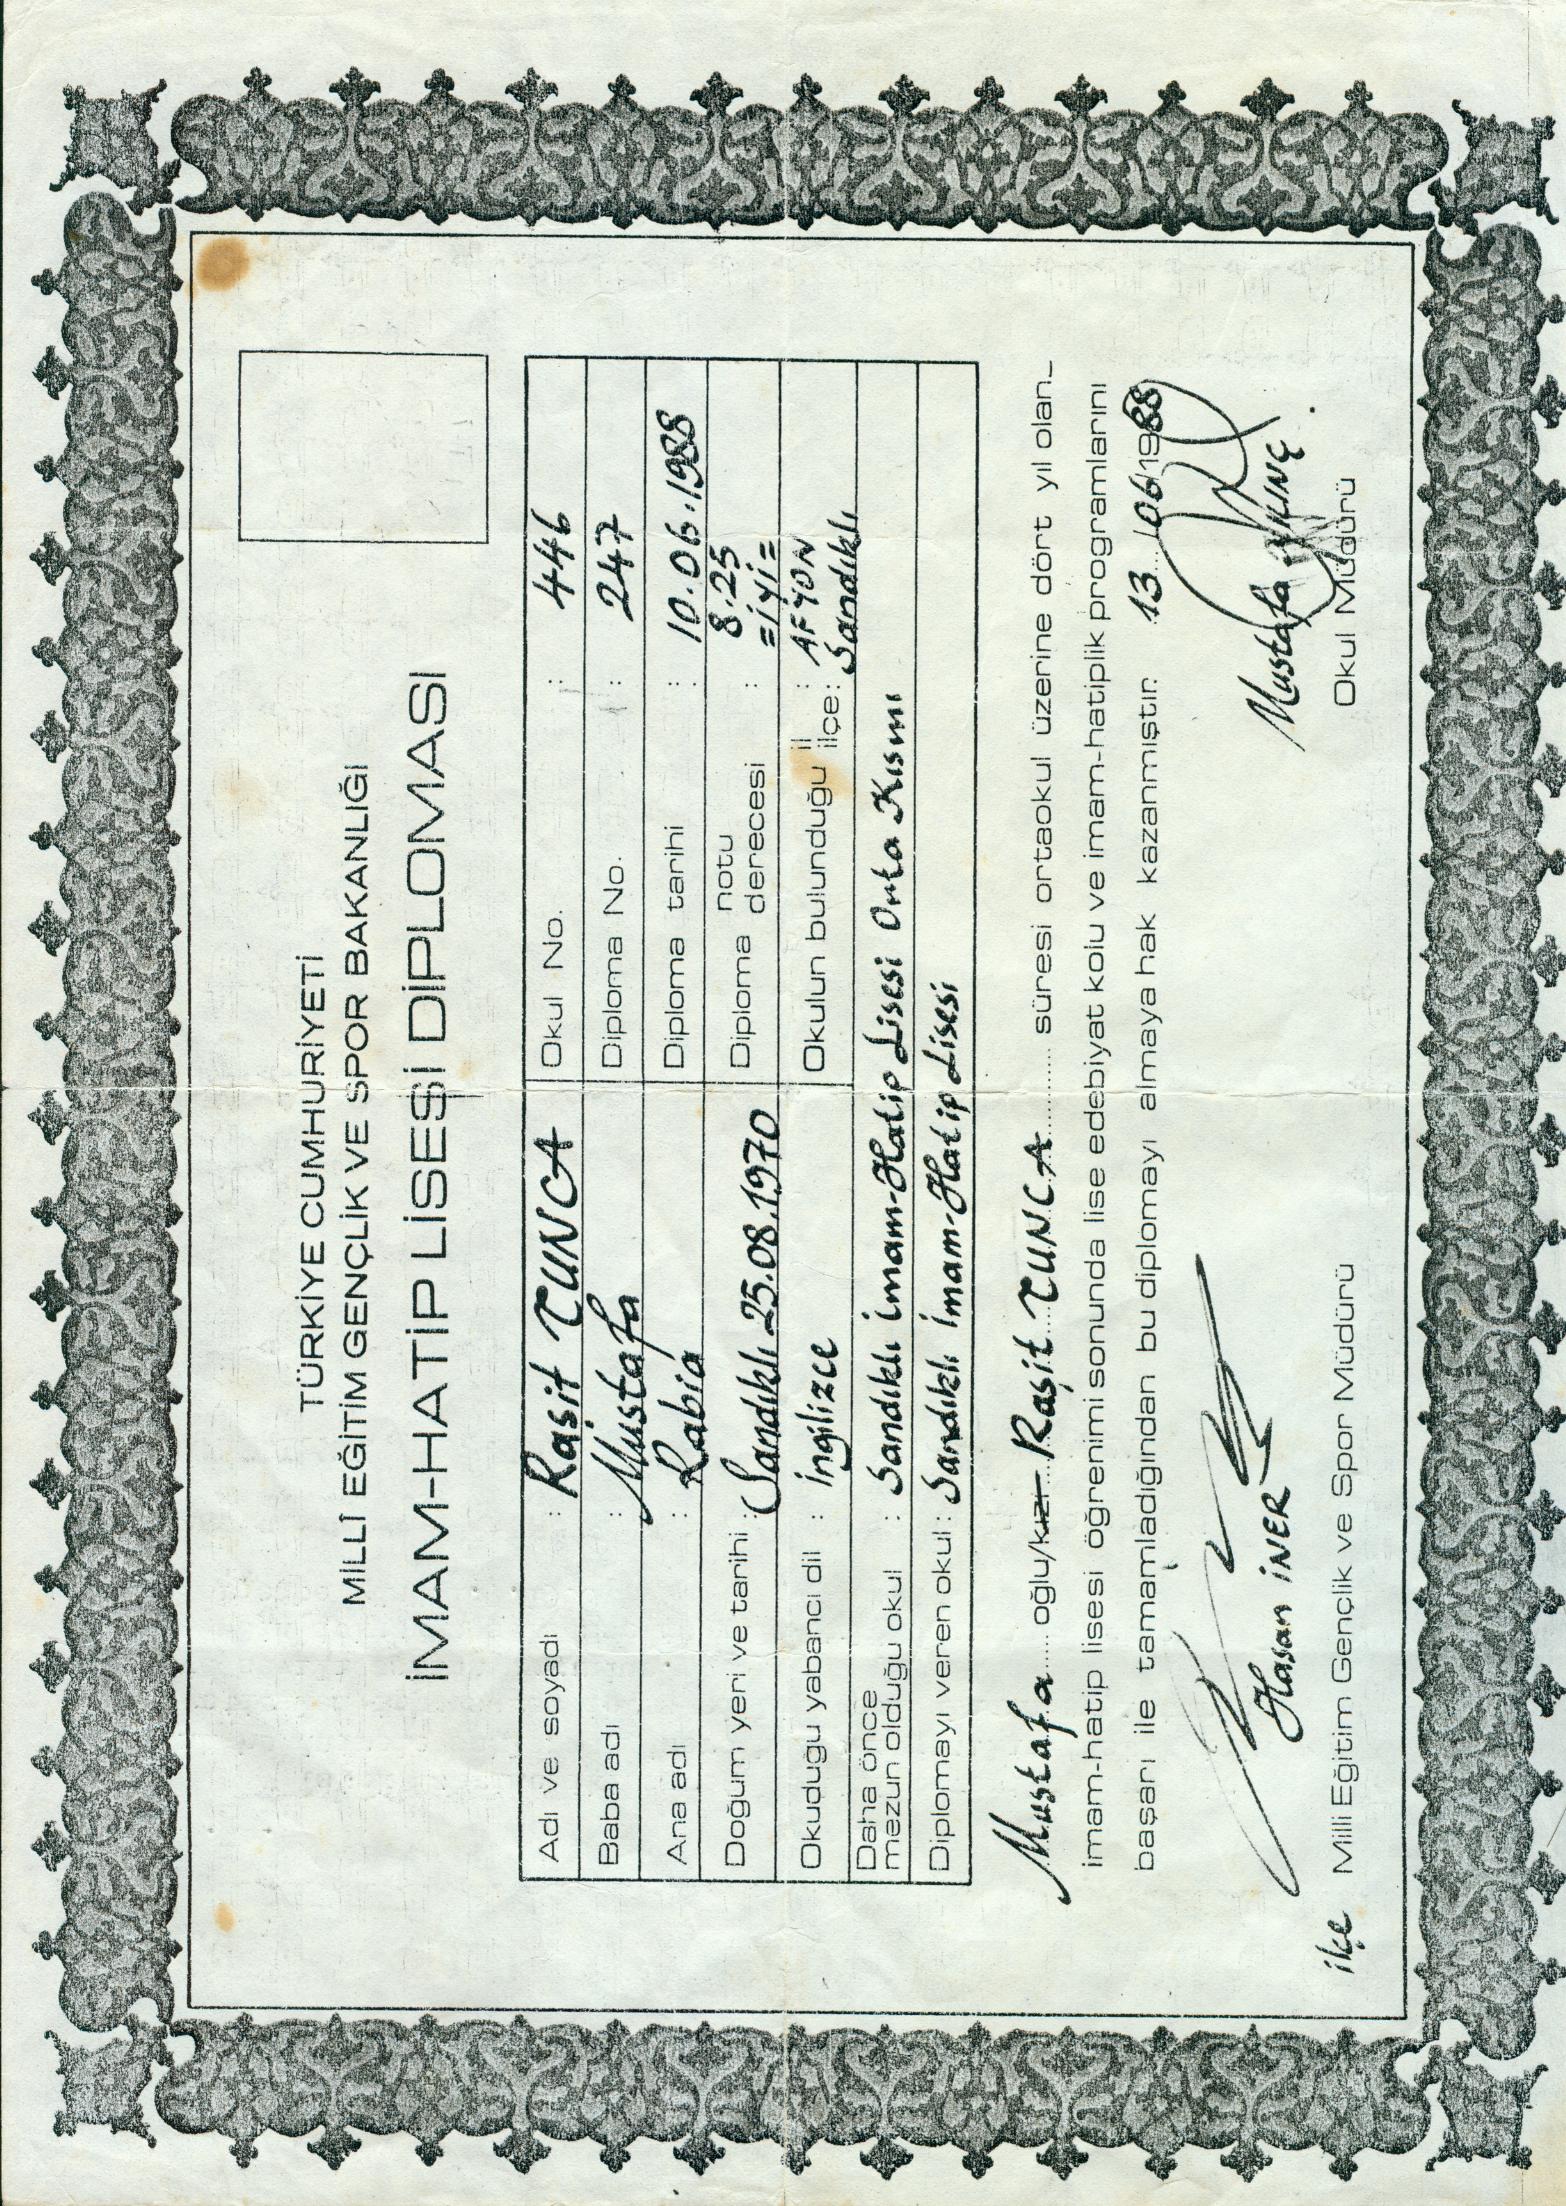 TÜRKİYE CUMHURİYETİ
MİLLÎ EĞİTİM GENÇLİK VE SPOR BAKANLIĞI
İMAM-HATİP LİSESİ DİPLOMASI
Adı ve soyadı : Raşit TUNCA
Okul No. : 446
Baba adı : Mustafa
Diploma No. : 247
Ana adı : Rabia
Diploma tarihi : 10.06.1988
Doğum yeni ve tarihi : Sandıklı 25.08.1970
Diploma notu 8.25
derecesi : =iyi=
Okuduğu yabancı dil : İngilizce
Okulun bulunduğu il : AFYON
ilçe : Sandıklı
Daha önce
mezun olduğu okul : Sandıklı İmam-Hatip Lisesi Orta Kısmı
Diplomayı veren okul : Sandıklı İmam-Hatip Lisesi
Mustafa oğlu/kızı Raşit TUNCA süresi ortaokul üzerine dört yıl olan
imam-hatip lisesi öğrenimi sonunda lise edebiyat kolu ve imam-hatiplik programlarını
başarı ile tamamladığından bu diplomayı almaya hak kazanmıştır. 13/06/1988
Hasan İNER
Mustafa
ilçe Milli Eğitim Gençlik ve Spor Müdürü
Okul Müdürü